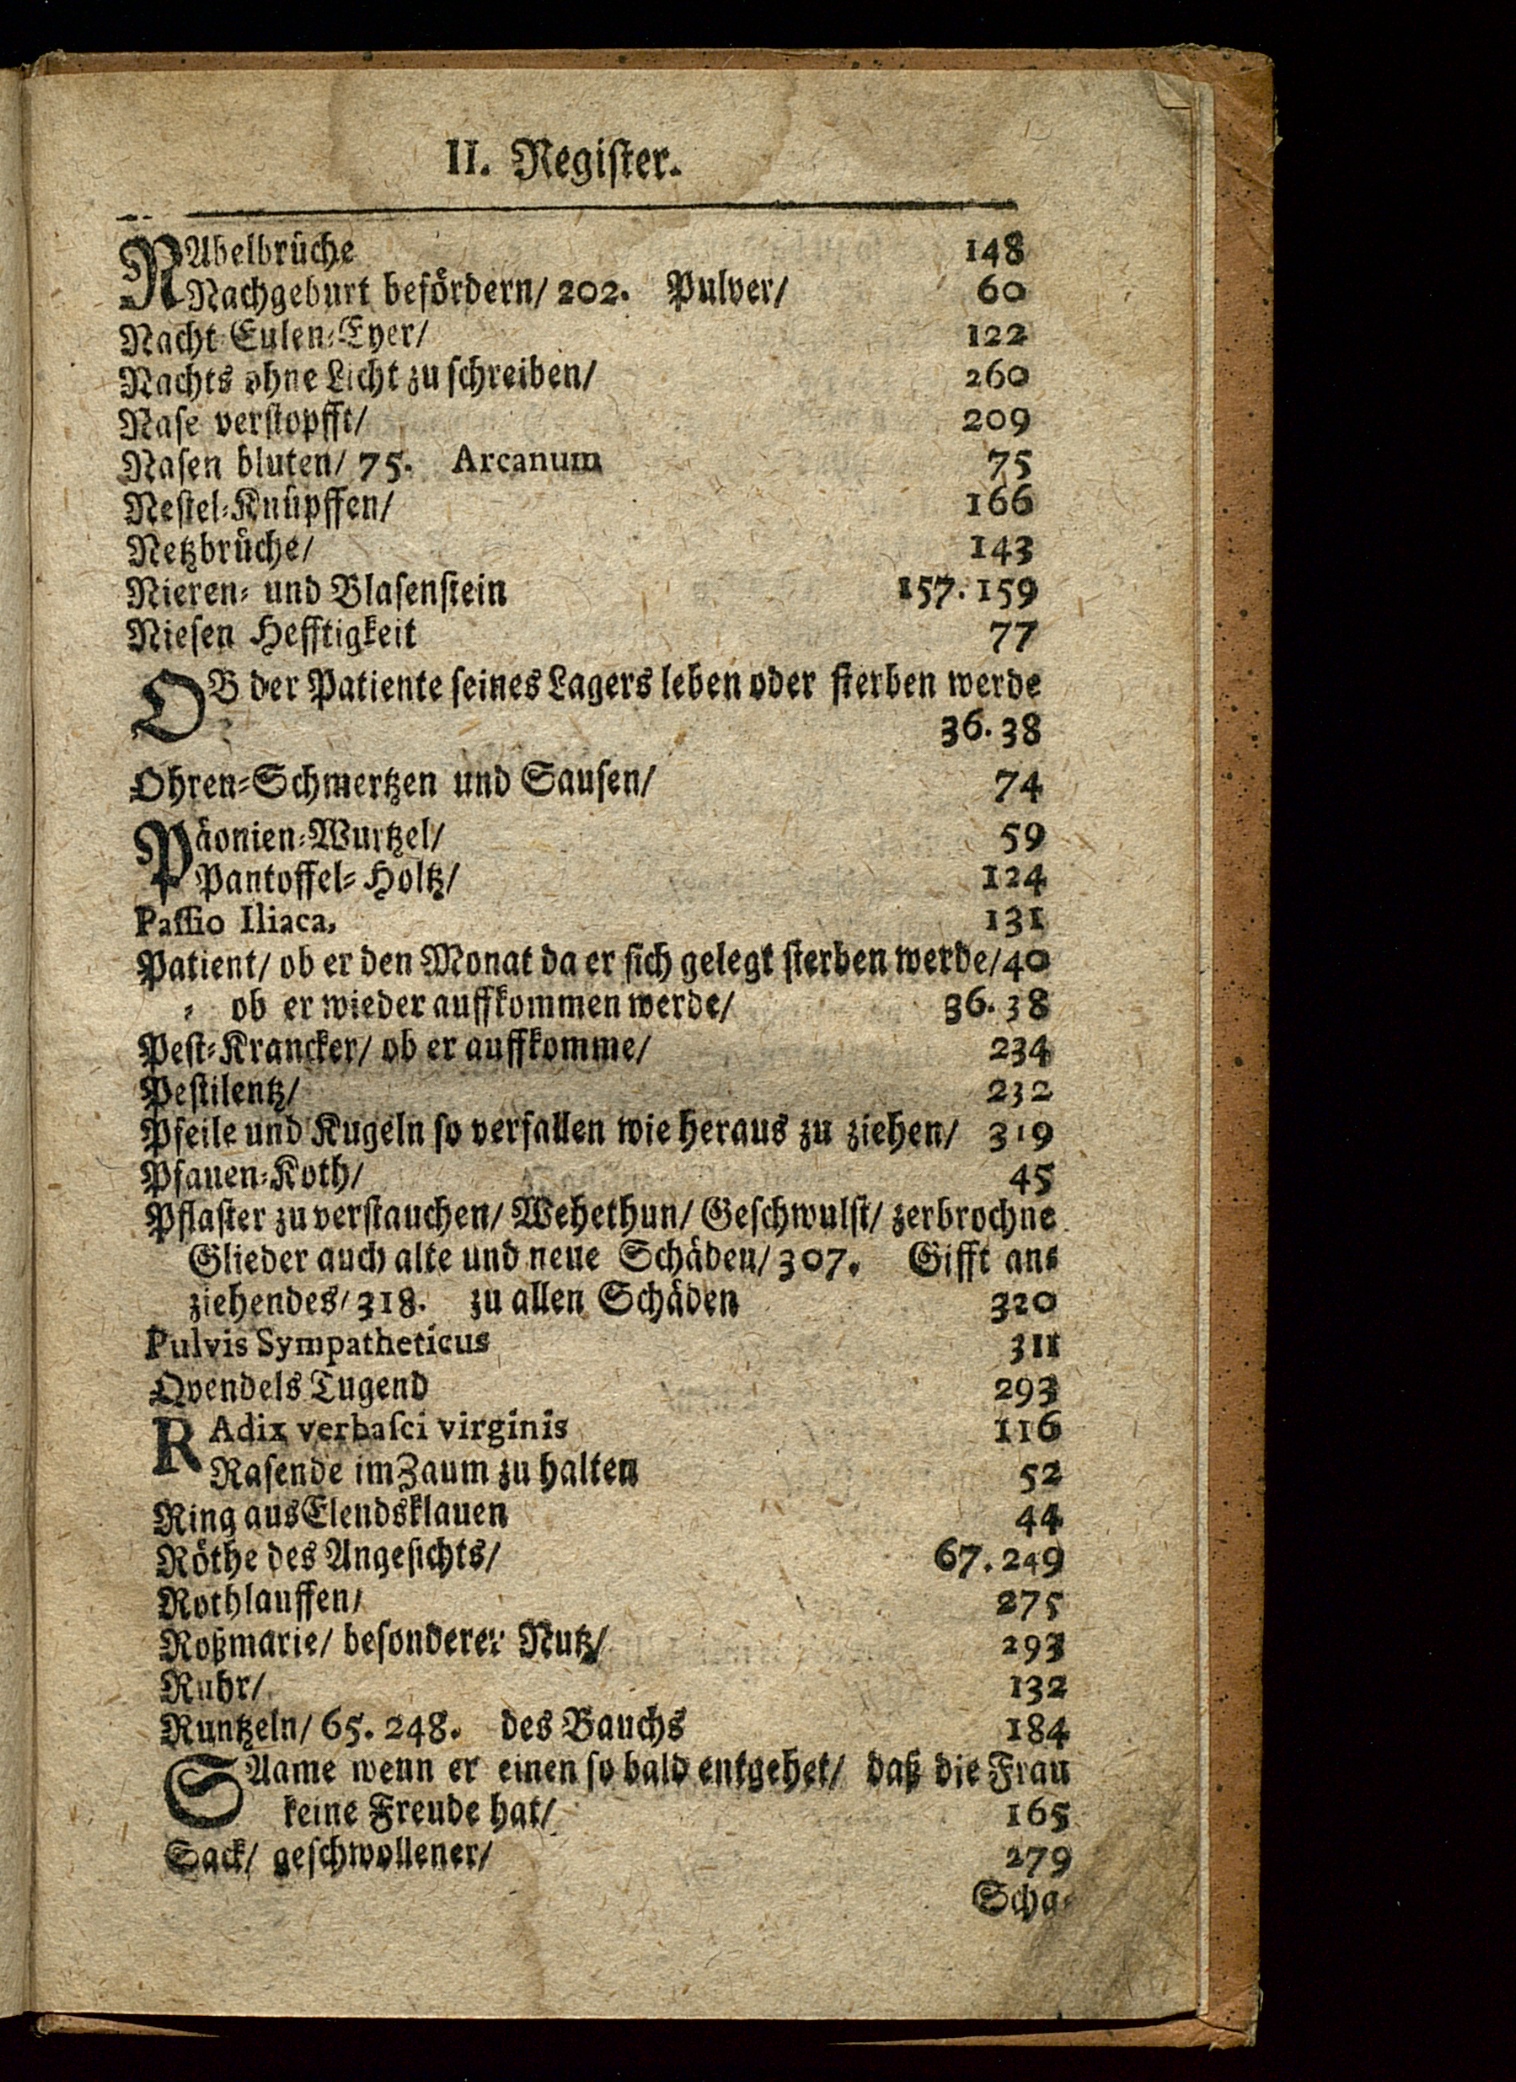 II. Regiſter.
NAbelbrüche 148
Nachgeburt befördern/ 202. Pulver/ 60
Nacht Eulen-Eyer/ 122
Nachts ohne Licht zu ſchreiben/ 260
Naſe verſtopfft/ 209
Naſen bluten/ 75. Arcanum 75
Neſtel-Knüpffen/ 166
Netzbrüche/ 143
Nieren- und Blaſenſtein 157. 159
Nieſen Hefftigkeit 77
OB der Patiente ſeines Lagers leben oder ſterben werde
36. 38
Ohren-Schmertzen und Sauſen/ 74
Päonien-Wurtzel/ 59
Pantoffel-Holtz/ 124
Paſſio Iliaca, 131
Patient/ ob er den Monat da er ſich gelegt ſterben werde/ 40
- ob er wieder auffkommen werde/ 36. 38
Peſt-Krancker/ ob er auffkomme/ 234
Peſtilentz/ 232
Pfeile und Kugeln ſo verfallen wie heraus zu ziehen/ 319
Pfauen-Koth/ 45
Pflaſter zu verſtauchen/ Wehethun/ Geſchwulſt/ zerbrochne
Glieder auch alte und neue Schäden/ 307. Gifft an-
ziehendes/ 318. zu allen Schäden 320
Pulvis Sympatheticus 311
Qvendels Tugend 293
RAdix verbaſci virginis 116
Raſende im Zaum zu halten 52
Ring aus Elendsklauen 44
Röthe des Angeſichts/ 67. 249
Rothlauffen/ 275
Roßmarie/ beſonderer Nutz/ 293
Ruhr/ 132
Runtzeln/ 65. 248. des Bauchs 184
SAame wenn er einen ſo bald entgehet/ daß die Frau
keine Freude hat/ 165
Sack/ geſchwollener/ 279
Scha-